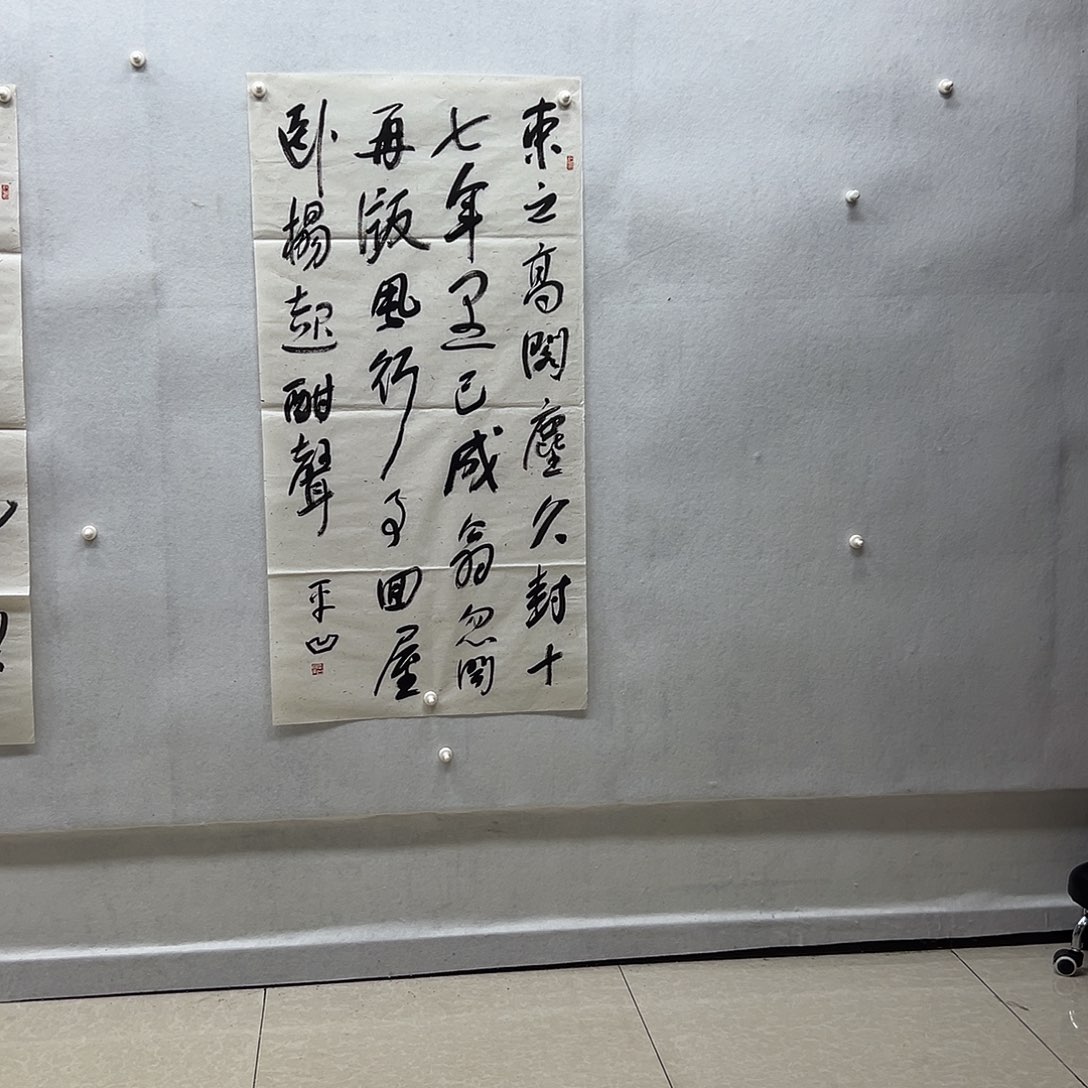 束之高閣塵久封十
七年過已成翁忽聞
再版風行事回屋
卧榻起酣聲
平凹